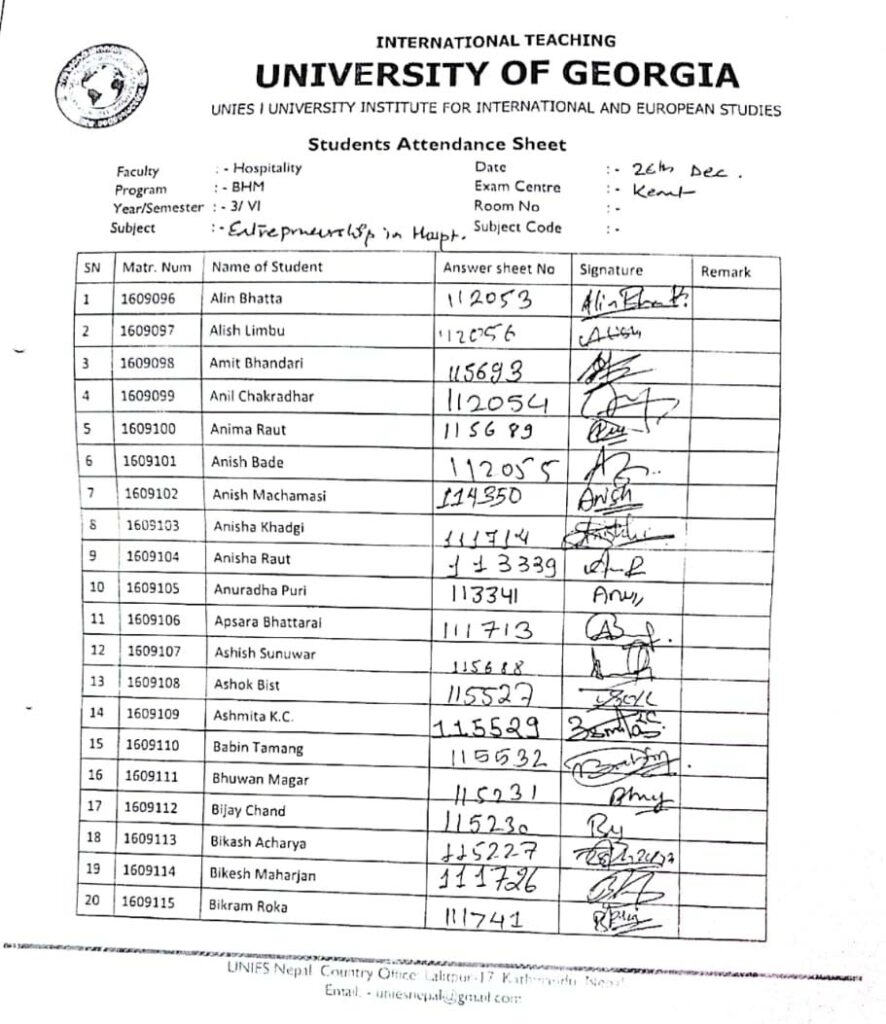 INTERNATIONAL TEACHING
UNIVERSITY OF GEORGIA
UNIES I UNIVERSITY INSTITUTE FOR INTERNATIONAL AND EUROPEAN STUDIES
Students Attendance Sheet
Faculty :- Hospitality Date :- 26th Dec.
Program :- BHM Exam Centre :- Kent
Year/Semester :- 3/ VI Room No :-
Subject :- Entrepreneurship in Hospt. Subject Code :-
SN Matr. Num Name of Student Answer sheet No Signature Remark
1 1609096 Alin Bhatta 112053 Alin Bhatt.
2 1609097 Alish Limbu 112056 Alish
3 1609098 Amit Bhandari 115693
4 1609099 Anil Chakradhar 112054
5 1609100 Anima Raut 115689
6 1609101 Anish Bade 112055
7 1609102 Anish Machamasi 114350 Anish
8 1609103 Anisha Khadgi 111714
9 1609104 Anisha Raut 113339
10 1609105 Anuradha Puri 113341 Anu
11 1609106 Apsara Bhattarai 111713
12 1609107 Ashish Sunuwar 115688
13 1609108 Ashok Bist 115527
14 1609109 Ashmita K.C. 115529
15 1609110 Babin Tamang 115532
16 1609111 Bhuwan Magar 115231
17 1609112 Bijay Chand 115230
18 1609113 Bikash Acharya 115227
19 1609114 Bikesh Maharjan 111726
20 1609115 Bikram Roka 111741
UNIES Nepal Country Office: Lalitpur-17 Kathmandu Nepal
Email: - uniesnepal@gmail.com